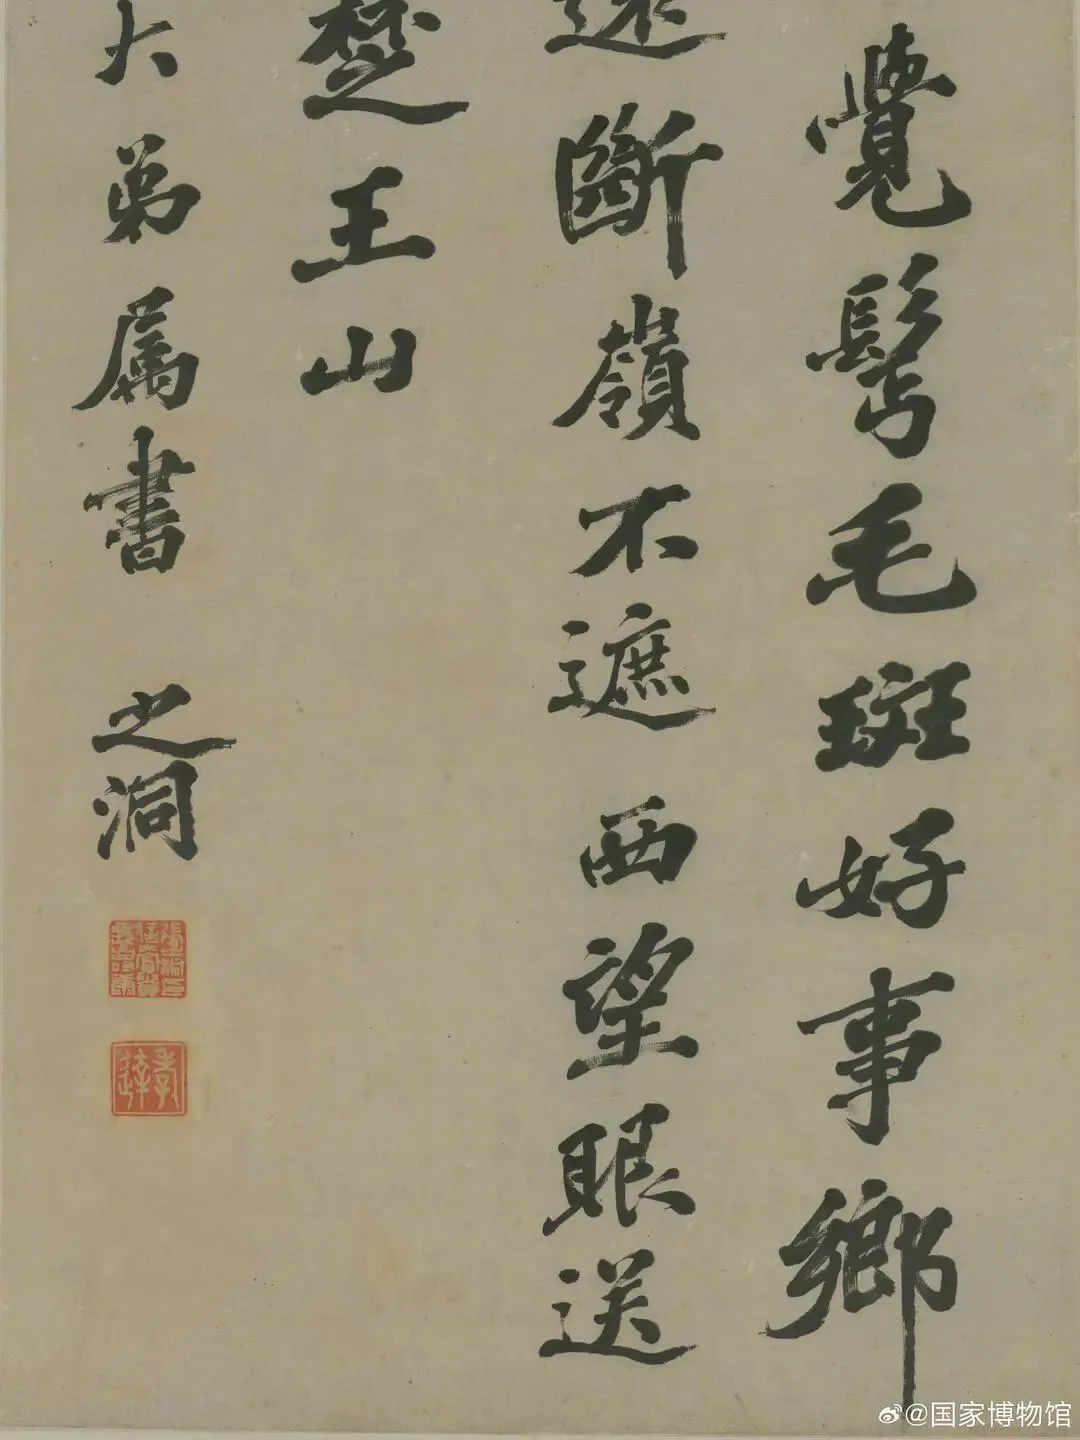 覺鬢毛斑好事鄉
斷嶺不遮西望眼送
楚王山
大弟属書 之洞
孝達
@国家博物馆